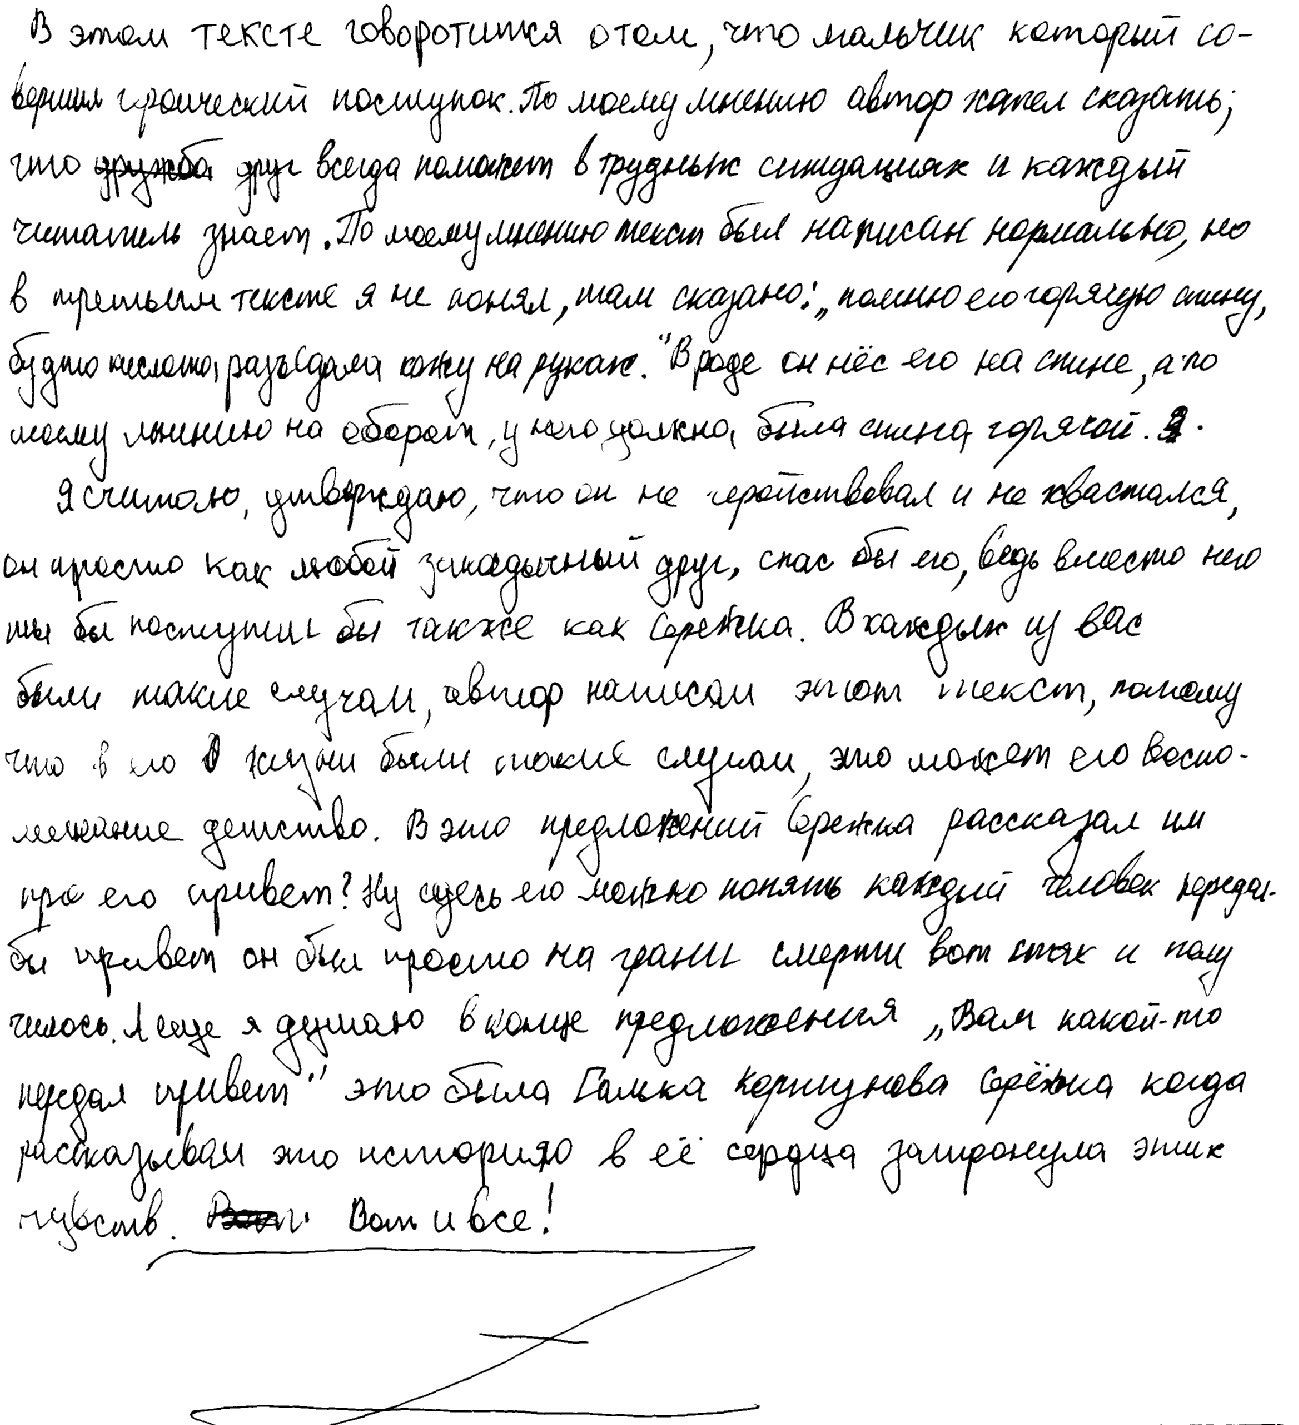 В этом тексте говоротится отом, что мальчик который со-
вершил героический поступок. По моему мнению автор хател сказать;
что дружба друг всегда поможет в трудных ситуациях и каждый
читатель знает. По моему мнению текст был написан нормально, но
в третьем тексте я не понял, там сказано: „помню его горячую спину,
будто кислота, разъедала кожу на руках." Вроде он нёс его на спине, а по
моему мнению на оборот, у него должна, была спина, горячей. Я.
Я считаю, утверждаю, что он не геройствовал и не хвастался,
он просто как любой закадычный друг, спас бы его, ведь вместо него
ты бы поступил бы также как Серёжка. В каждых из вас
были такие случаи, автор написал этот текст, потому
что в его жизни были такие случаи, это может его воспо-
менание детство. В это предложений Серёжка рассказал им
про его привет? Ну здесь его можно понять каждый человек передал-
бы привет он был просто на грани смерти вот так и полу
чилось. А еще я думаю в конце предложения „Вам какой-то
передал привет" это была Галька Коршунова Серёжка когда
рассказывал это историю в её сердца затронула этих
чувств. Вот и все!